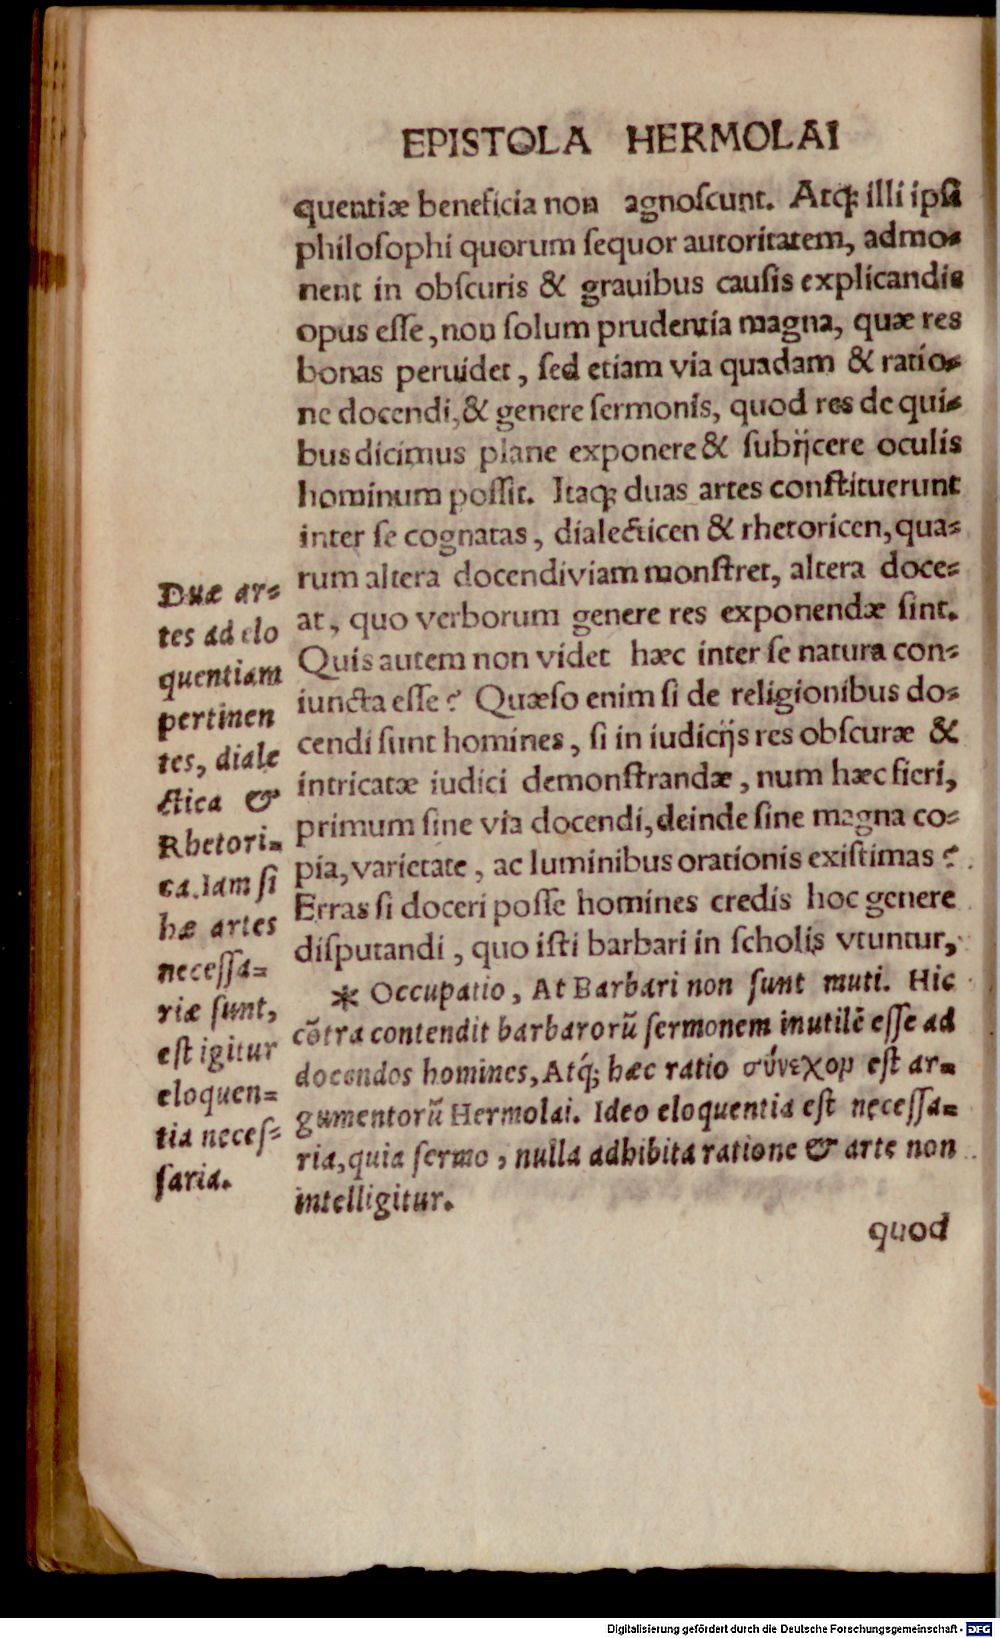 EPISTOLA HERMOLAI
quentiæ beneficia non agnoſcunt. Atq; illi ipſi
philoſophi quorum ſequor autoritatem, admo-
nent in obſcuris & grauibus cauſis explicandis
opus eſſe, non ſolum prudentia magna, quæ res
bonas peruidet, ſed etiam via quadam & ratio-
ne docendi, & genere ſermonis, quod res de qui-
bus dicimus plane exponere & ſubijcere oculis
hominum poſſit. Itaq; duas artes conſtituerunt
inter ſe cognatas, dialecticen & rhetoricen, qua-
rum altera docendi viam monſtret, altera doce-
at, quo verborum genere res exponendæ ſint.
Quis autem non videt hæc inter ſe natura con-
iuncta eſſe? Quæſo enim ſi de religionibus do-
cendi ſunt homines, ſi in iudicijs res obſcuræ &
intricatæ iudici demonſtrandæ, num hæc fieri,
primum ſine via docendi, deinde ſine magna co-
pia, varietate, ac luminibus orationis exiſtimas?
Erras ſi doceri poſſe homines credis hoc genere
diſputandi, quo iſti barbari in ſcholis vtuntur,
Duæ ar-
tes ad elo
quentiam
pertinen
tes, diale
ctica &
Rhetori-
ca. Iam ſi
hæ artes
neceſſa-
riæ ſunt,
eſt igitur
eloquen-
tia neceſ-
ſaria.
* Occupatio, At Barbari non ſunt muti. Hic
cõtra contendit barbarorũ ſermonem inutilẽ eſſe ad
docendos homines, Atq́; hæc ratio σύνεχορ eſt ar-
gumentorũ Hermolai. Ideo eloquentia eſt neceſſa-
ria, quia ſermo, nulla adhibita ratione & arte non
intelligitur.
quod
Digitalisierung gefördert durch die Deutsche Forschungsgemeinschaft - DFG